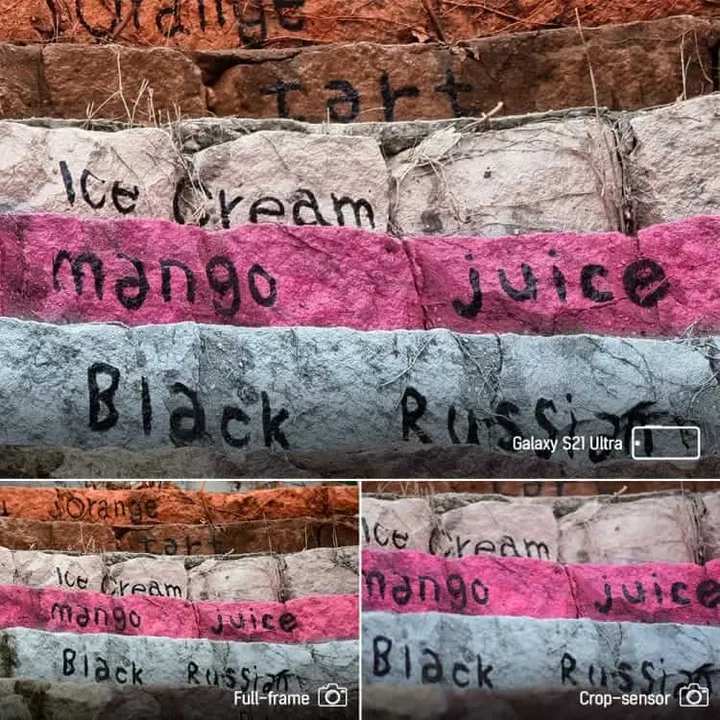 Orange
tart
Ice Cream
mango juice
Black Russian
Galaxy S21 Ultra
JOrange
tart
Ice Cream
mango juice
Black Russian
Full-frame
Ice Cream
mango juice
Black Russian
Crop-sensor